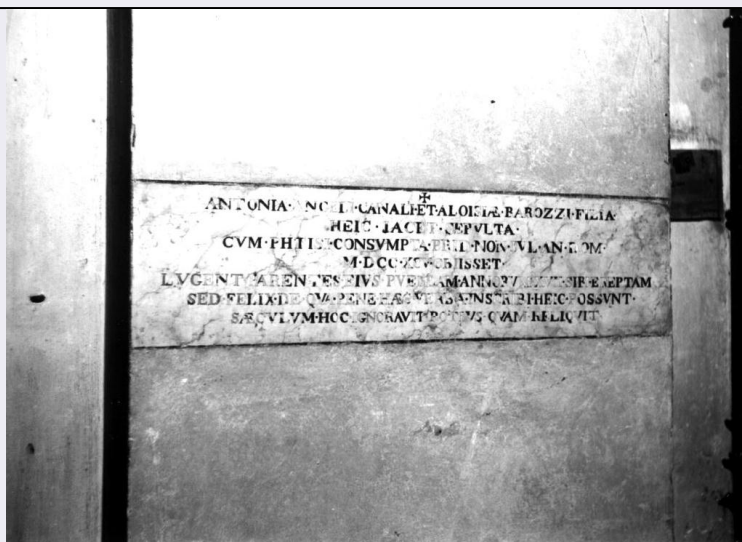 ANTONIA · ANGELI · CANALI · ET · ALOISIÆ · BAROZZI · FILIA ·
HEIC · JACET · SEPVLTA ·
CVM · PHTISI · CONSVMPTA · PRID · NON · IVL · AN · DOM ·
M · D CC · XCV · OBIISSET ·
LVGENT PARENTES EIVS SIBI EREPTAM
SED · FELIX · DE · QVA · PENE HÆC INSCRIBI · HEIC · POSSVNT ·
SÆCVLVM · HOC · IGNORAVIT · POTIVS · QVAM · RELIQVIT